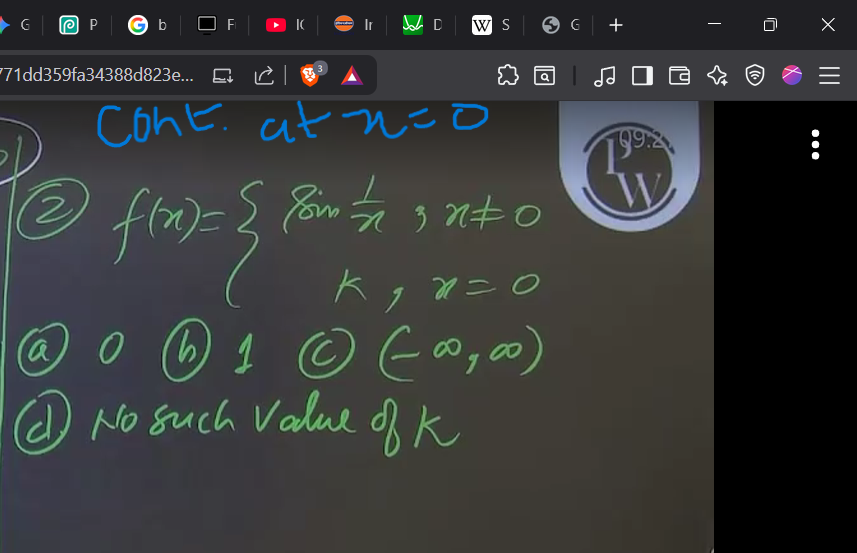 G P G b F I( Ir D W S G +
771dd359fa34388d823e... 3
Cont. at x=0
09:2
PW
② f(x)={ sin 1/x ; x≠0
k, x=0
ⓐ 0 ⓑ 1 ⓒ (-∞,∞)
ⓓ No such value of k